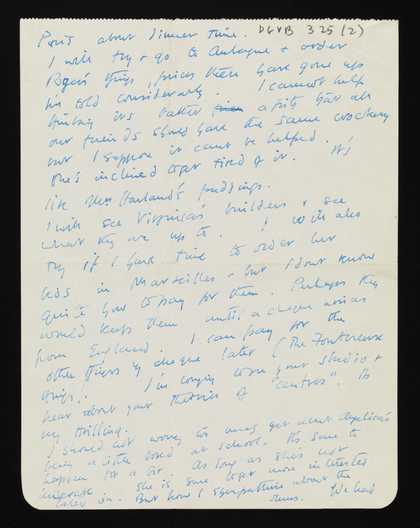 Paris about dinner time. DGVB 325 (2)
I will try & go to Aubagne & order
Roger's things, prices there have gone up
he told considerably. I cannot help
thinking its rather a pity that all
our friends should have the same crockery
but I suppose it can't be helped.
One's inclined to get tired of it. It's
like Mrs Harland's puddings.
I will see Virginia's builders & see
what they are up to. I will also
try if I have time to order her
beds in Marseilles - but I don't know
quite how to pay for them. Perhaps they
would keep them until a cheque arrives
from England. I can pay for the
other things by cheque later (The Fontcreuse
things). I'm longing to see your studio &
hear about your theories of "centres". It's
very thrilling.
I should not worry too much about Angelica's
being a little bored at school. It's sure to
happen for a bit. As long as she's not
she is sure to get more interested
later on. But how I sympathise about the
We had